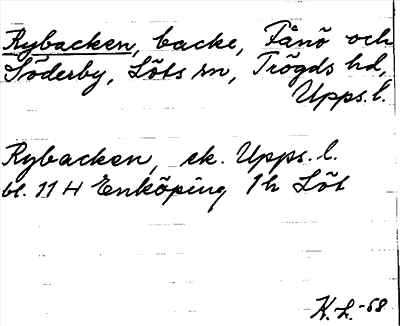 Rybacken, backe, Fånö och
Söderby, Löts sn, Trögds hd,
Upps. l.
Rybacken, ek. Upps. l.
bl. 11 H Enköping 1h Löt
K. L. -58